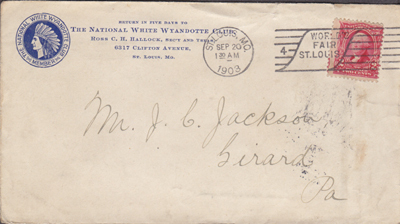 RETURN IN FIVE DAYS TO
THE NATIONAL WHITE WYANDOTTE CLUB,
HORR C. H. HALLOCK, SEC'Y AND TREAS.
6217 CLIFTON AVENUE,
ST. LOUIS, MO.
THE NATIONAL WHITE WYANDOTTE CLUB
MEMBER
ST. LOUIS, MO.
SEP 20
AM
1903
4
WORLD'S
FAIR
ST. LOUIS
Mr. J. C. Jackson
Girard
Pa